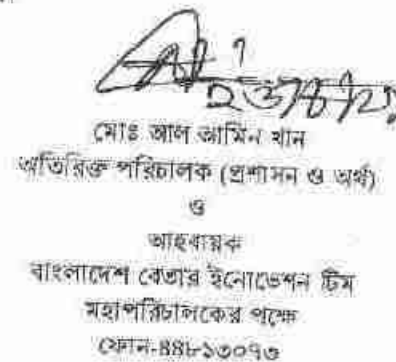 মোঃ আল আমিন খান
অতিরিক্ত পরিচালক (প্রশাসন ও অর্থ)
ও
আহবায়ক
বাংলাদেশ বেতার ইনোভেশন টিম
মহাপরিচালকের পক্ষে
ফোন-৪৪৮১৩০৭৩